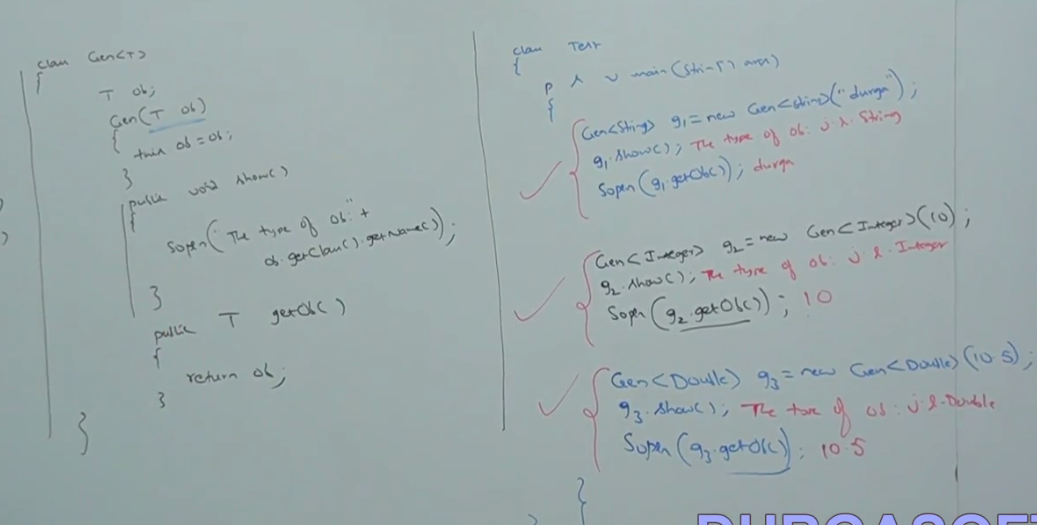 class Gen<T>
{
T ob;
Gen(T ob)
{
this ob = ob;
}
public void show()
{
Sopln("The type of ob:" +
ob.getClass().getName());
}
public T getOb()
{
return ob;
}
}
class Test
{
p s v main(String[] args)
{
Gen<String> g1 = new Gen<String>("durga");
g1.show(); The type of ob: j.l.String
Sopln(g1.getOb()); durga
Gen<Integer> g2 = new Gen<Integer>(10);
g2.show(); The type of ob: j.l.Integer
Sopln(g2.getOb()); 10
Gen<Double> g3 = new Gen<Double>(10.5);
g3.show(); The type of ob: j.l.Double
Sopln(g3.getOb()); 10.5
}
}
DURGASOFT